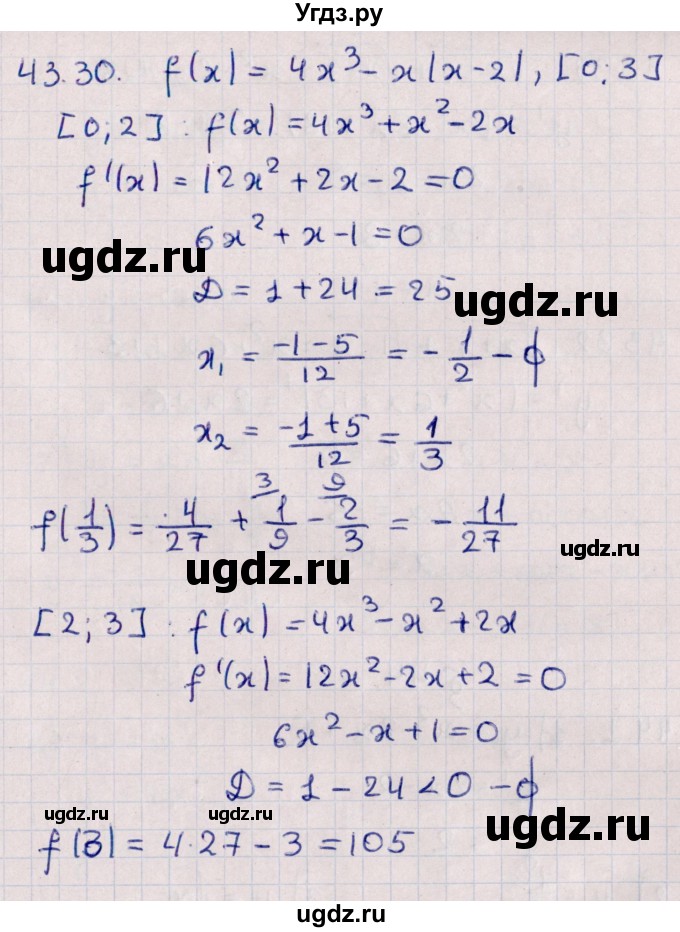 Угдз.ру
43.30. f(x) = 4x³ - x|x-2|, [0; 3]
[0; 2] : f(x) = 4x³ + x² - 2x
f'(x) = 12x² + 2x - 2 = 0
6x² + x - 1 = 0
ugdz.ru
Д = 1 + 24 = 25
ugdz.ru
x₁ = (-1-5)/12 = -1/2 - ф
x₂ = (-1+5)/12 = 1/3
3 9
f(1/3) = 4/27 + 1/9 - 2/3 = -11/27
ugdz.ru
ugdz.ru
[2; 3] : f(x) = 4x³ - x² + 2x
f'(x) = 12x² - 2x + 2 = 0
6x² - x + 1 = 0
Д = 1 - 24 < 0 - ф
ugdz.ru
ugdz.ru
ugdz.ru
f(3) = 4·27 - 3 = 105
ugdz.ru